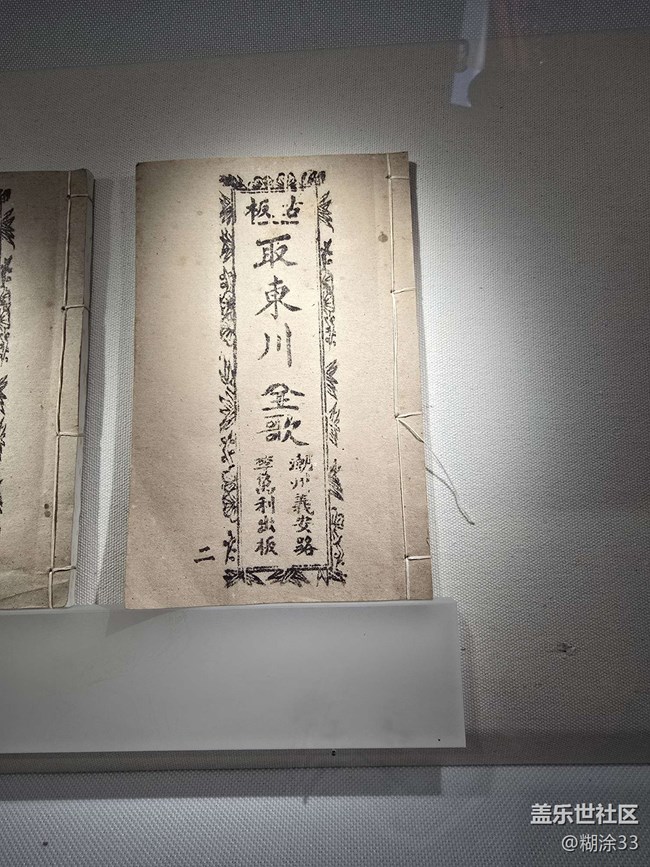 古板
取東川全歌
潮州義安路
李萬利出板
二
盖乐世社区
@糊涂33